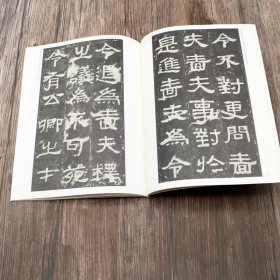 今不對更問嗇
夫嗇夫事對於
是進嗇夫為令
令退為嗇夫釋
之議為不可苑
令有公卿之才